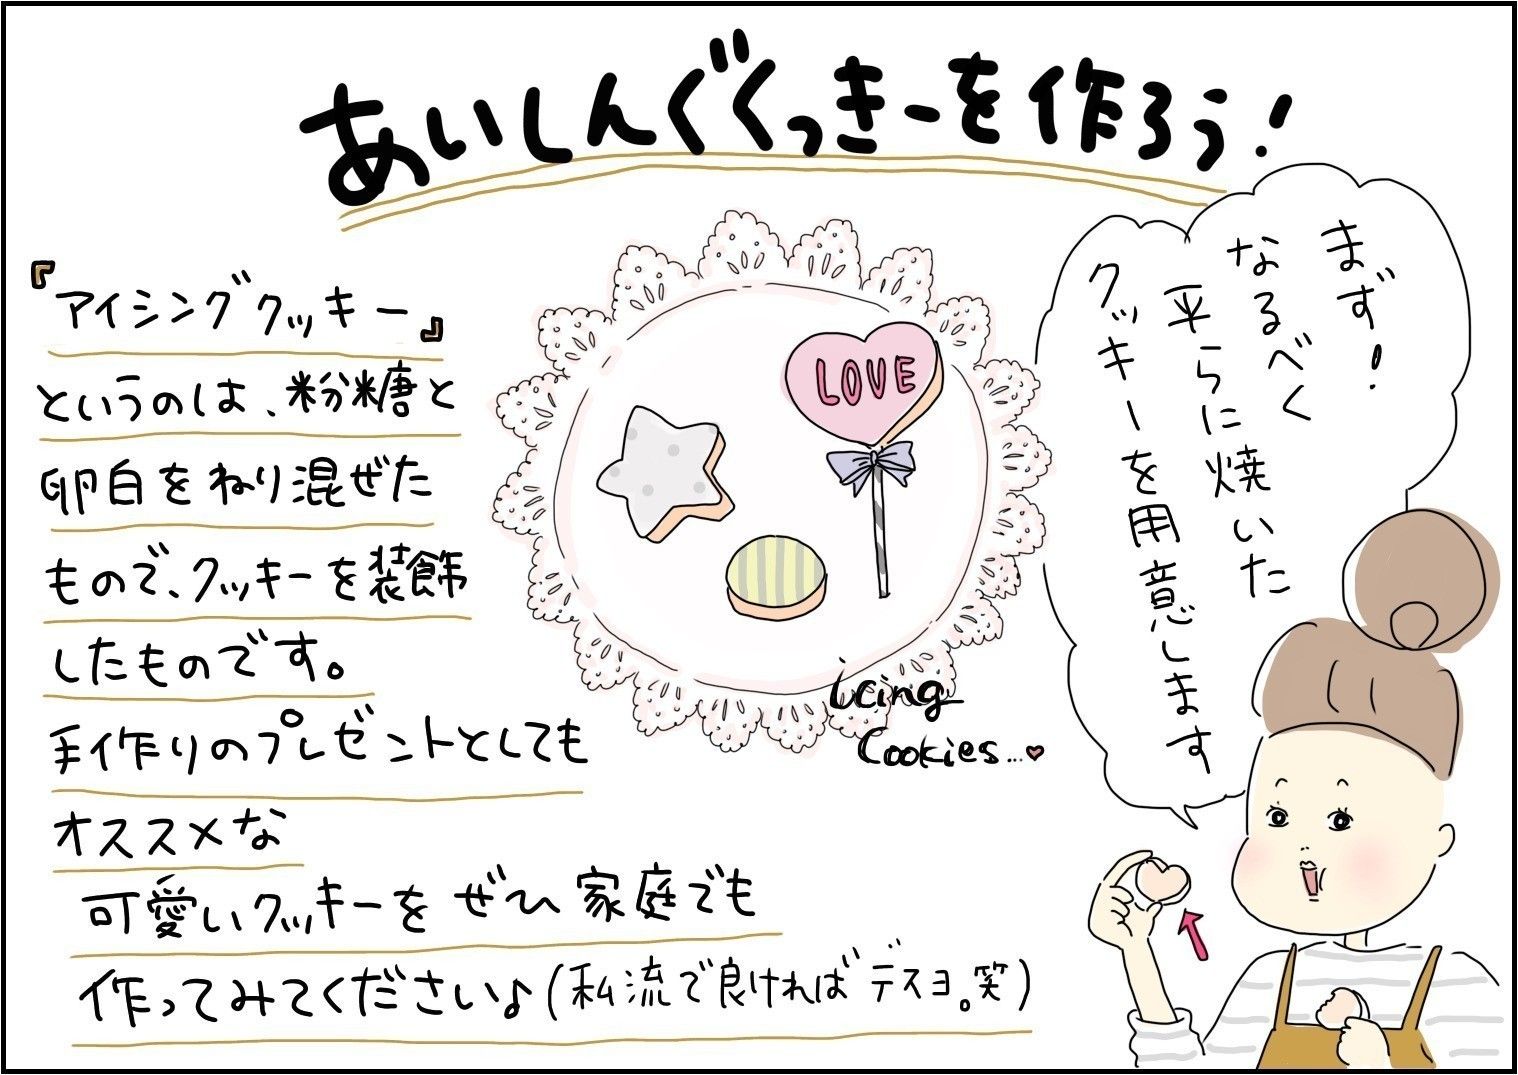 あいしんぐくっきーを作ろう!
『アイシングクッキー』
というのは、粉糖と
卵白をねり混ぜた
もので、クッキーを装飾
したものです。
手作りのプレゼントとしても
オススメな
可愛いクッキーをぜひ家庭でも
作ってみてください♪(私流で良ければデスヨ。笑)
LOVE
icing
Cookies...♥
まず!
なるべく
平らに焼いた
クッキーを用意します